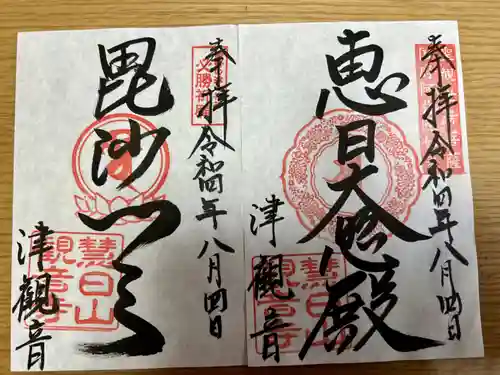 奉拝 令和四年八月四日
恵日大悲殿
津観音
奉拝 令和四年八月四日
必勝
毘沙门天
津観音
慧日山
観音寺
慧日山
観音寺